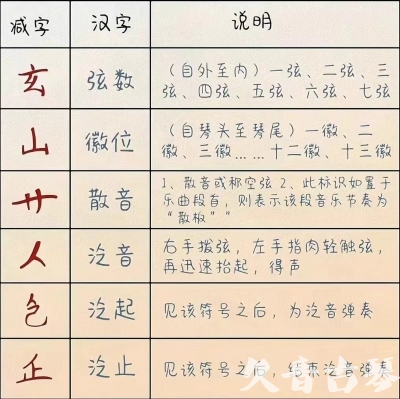 减字 汉字 说明
玄 弦数 （自外至内）一弦、二弦、三
弦、四弦、五弦、六弦、七弦
山 徽位 （自琴头至琴尾）一徽、二
徽、三徽……十二徽、十三徽
艹 散音 1、散音或称空弦 2、此标识如置于
乐曲段首，则表示该段音乐节奏为
“散板”
人 泛音 右手拨弦，左手指肉轻触弦，
再迅速抬起，得声
色 泛起 见该符号之后，为泛音弹奏
正 泛止 见该符号之后，结束泛音弹奏
久音古琴